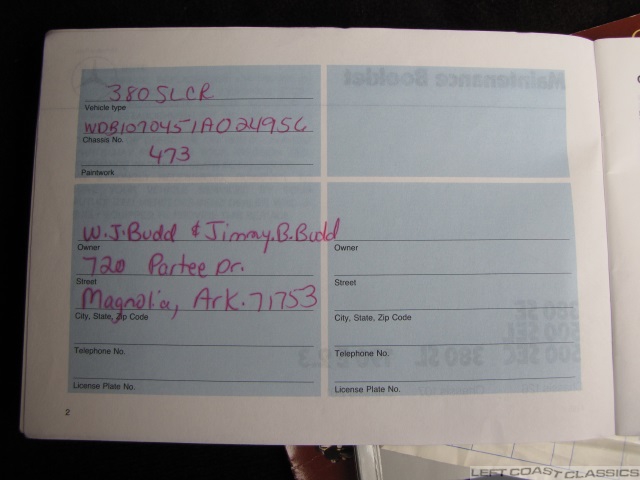 380SLCR
Vehicle type
WDB1070451A024956
Chassis No.
473
Paintwork
W.J.Budd & Jimmy.B.Budd
Owner
720 Partee Dr.
Street
Magnolia, Ark. 71753
City, State, Zip Code
Telephone No.
License Plate No.
Owner
Street
City, State, Zip Code
Telephone No.
License Plate No.
2
Maintenance Booklet
380 SE
500 SEL
500 SEC 380 SL
LEFT COAST CLASSICS